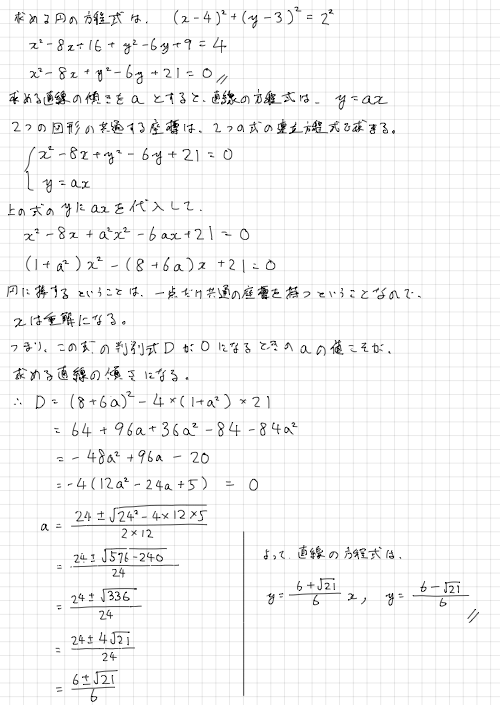 求める円の方程式は、 (x-4)²+(y-3)²=2²
x²-8x+16+y²-6y+9=4
x²-8x+y²-6y+21=0
求める直線の傾きをaとすると、直線の方程式は、y=ax
2つの図形の共通する座標は、2つの式の連立方程式で求まる。
{ x²-8x+y²-6y+21=0
y=ax
上の式のyにaxを代入して、
x²-8x+a²x²-6ax+21=0
(1+a²)x²-(8+6a)x+21=0
円に接するということは、一点だけ共通の座標を持つということなので、
xは重解になる。
つまり、この式の判別式Dが0になるときのaの値こそが、
求める直線の傾きになる。
∴ D=(8+6a)²-4×(1+a²)×21
=64+96a+36a²-84-84a²
=-48a²+96a-20
=-4(12a²-24a+5) = 0
a = (24±√(24²-4×12×5))/(2×12)
= (24±√(576-240))/24
= (24±√336)/24
= (24±4√21)/24
= (6±√21)/6
よって、直線の方程式は、
y=(6+√21)/6 x, y=(6-√21)/6